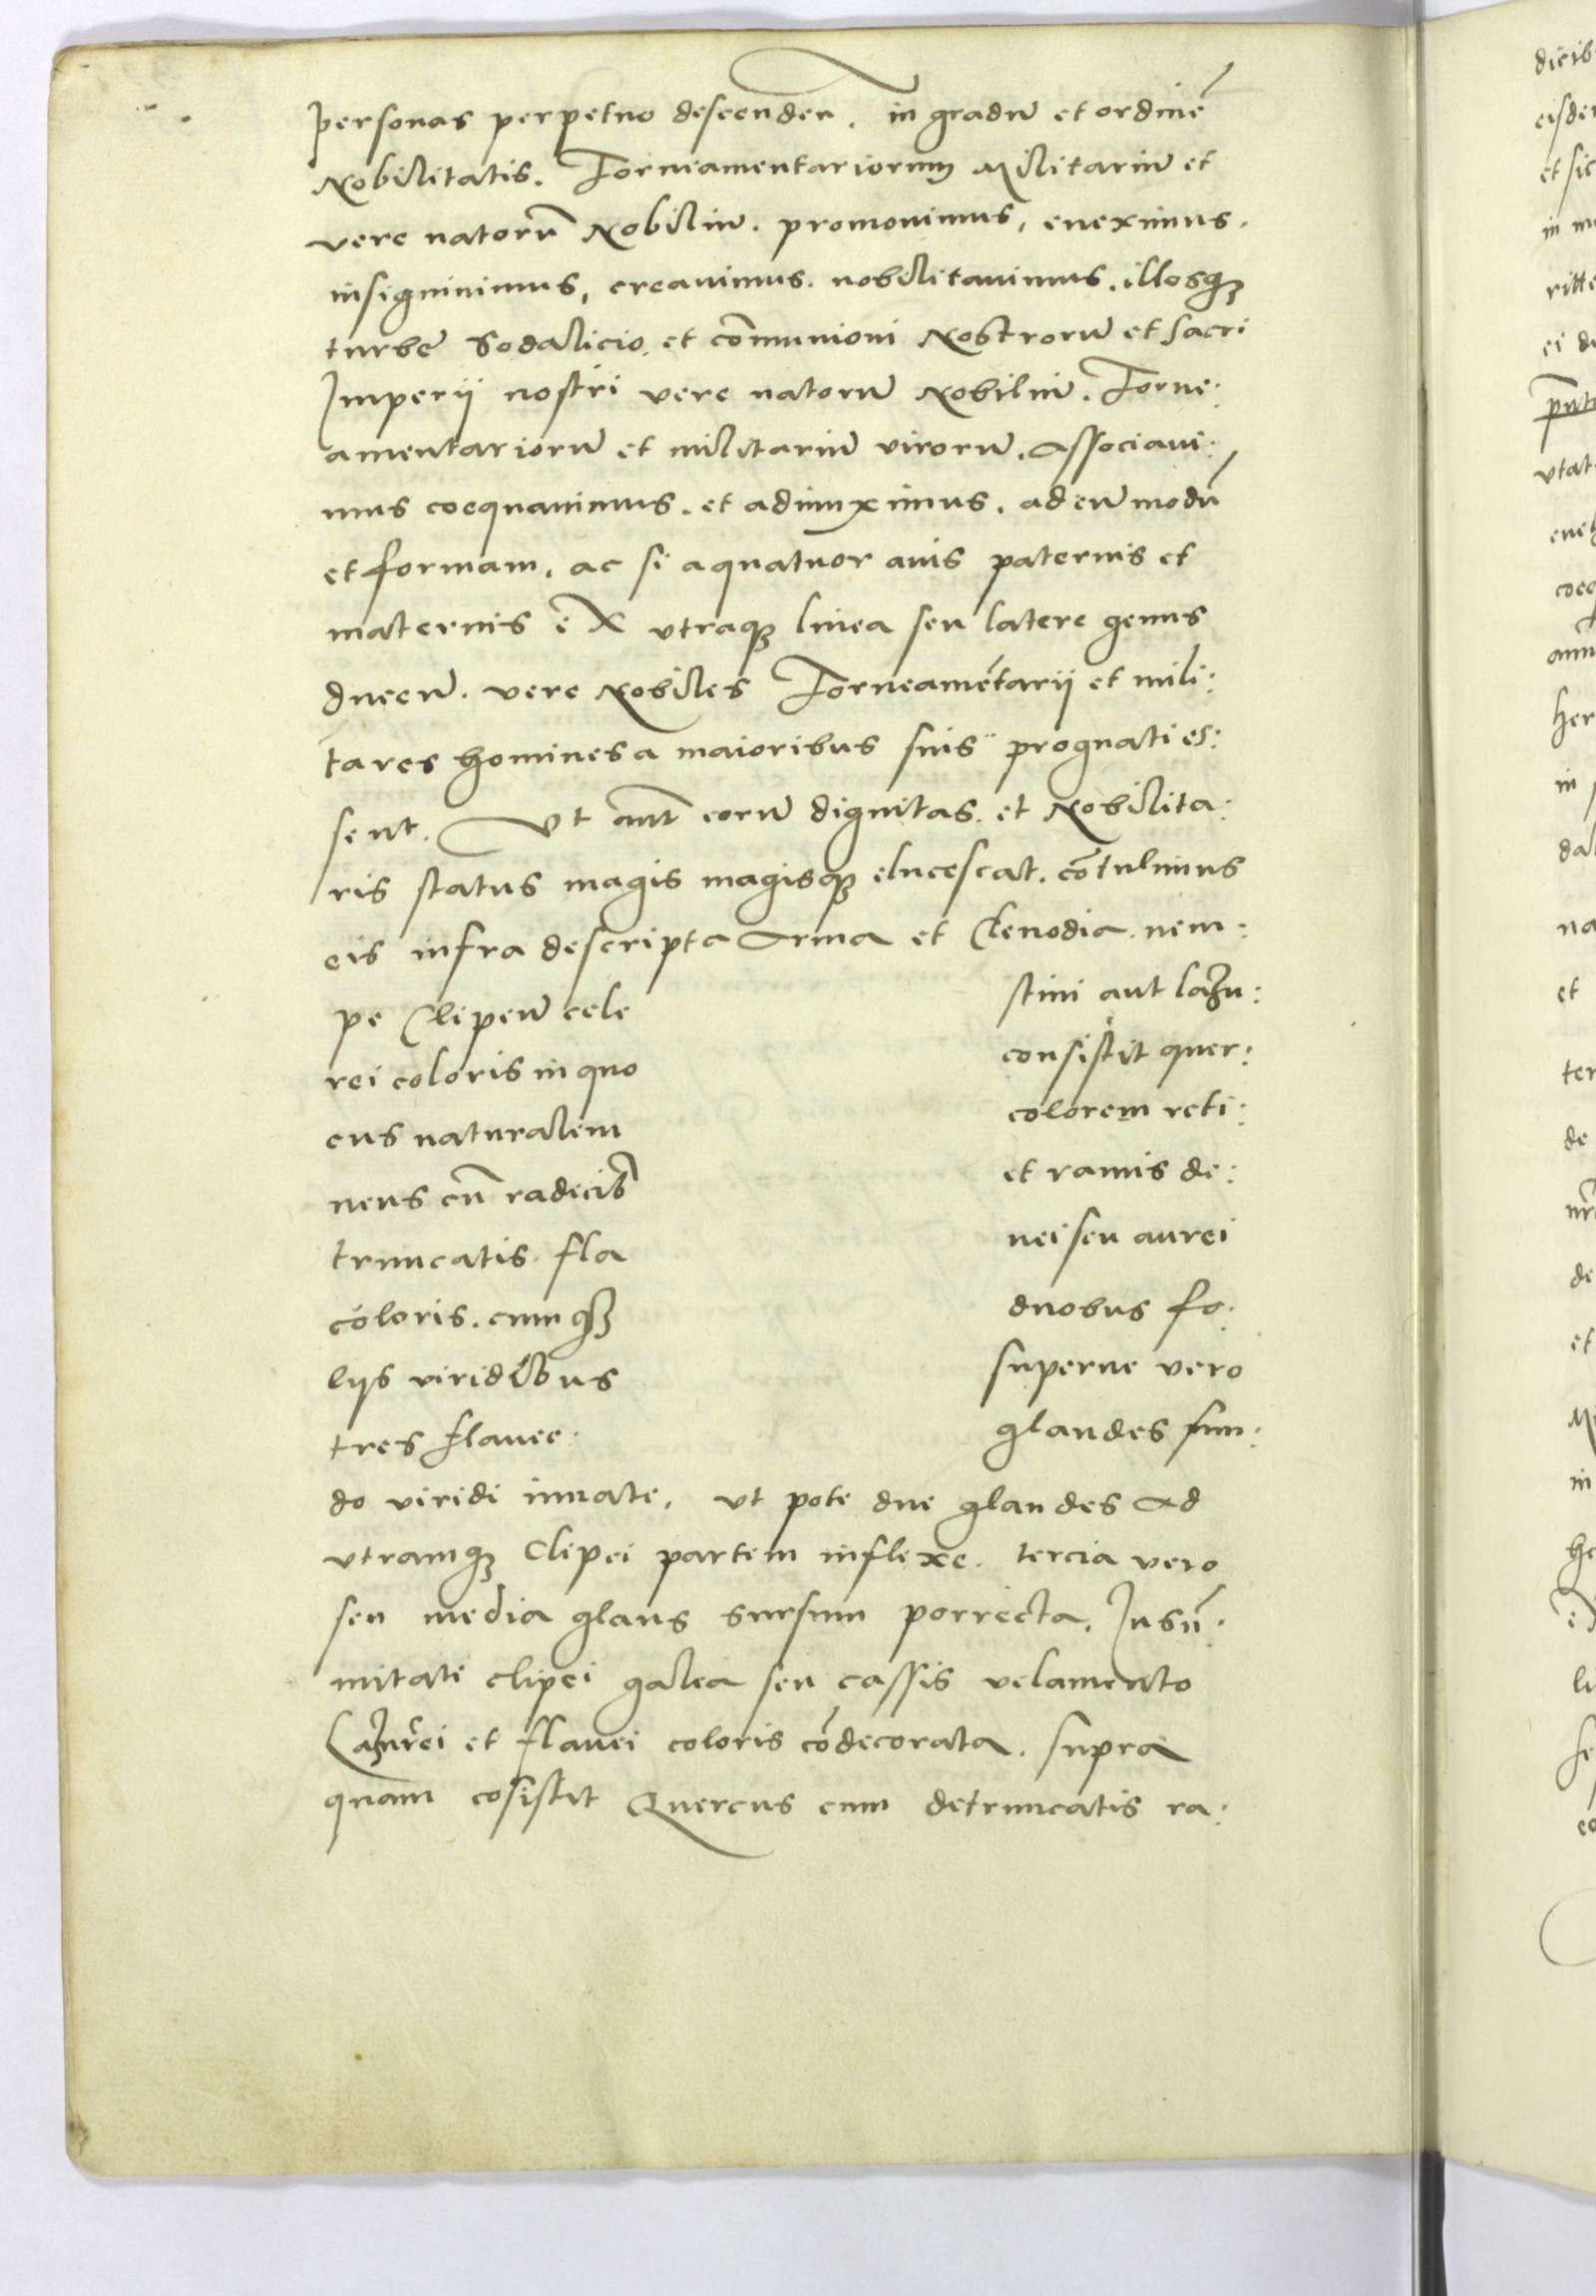 personas perpetuo descenden. in gradū et ordinē
Nobilitatis. Torneamentariorum Militariū et
vere natorū Nobiliū. promouimus, eueximus.
insigniuimus, creauimus. nobilitauimus. illosqȝ
turbe Sodalicio. et cōmunioni Nostrorū et sacri
Imperij nostri vere natorū Nobiliū. Torne:
amentariorū et militariū virorū. Associaui:
mus coequauimus. et adiunximus. ad eū modū
et formam, ac si a quatuor auis paternis et
maternis ex vtraqȝ linea seu latere genus
ducerū. vere Nobiles Torneamētarij et mili:
tares homines a maioribus suis prognati es:
sent. Vt aūt eorū dignitas. et Nobilita:
ris status magis magisqȝ elucescat. cōtulimus
eis infra descripta Arma et Clenodia. nem:
pe Clipeū cele stini aut lazu:
rei coloris in quo consistit quer:
cus naturalem colorem reti:
nens cū radecib et ramis de:
truncatis. fla nei seu aurei
coloris. cumqȝ duobus fo:
lijs viridibus superne vero
tres flauee. glandes fun:
do viridi innate, vt pote due glandes ad
vtramqȝ Clipei partem inflexe. tercia vero
seu media glans sursum porrecta. In sū:
mitate clipei galea seu cassis velamento
Lazurei et flauei coloris cōdecorata. supra
quam cosistit Quercus cum detruncatis ra: